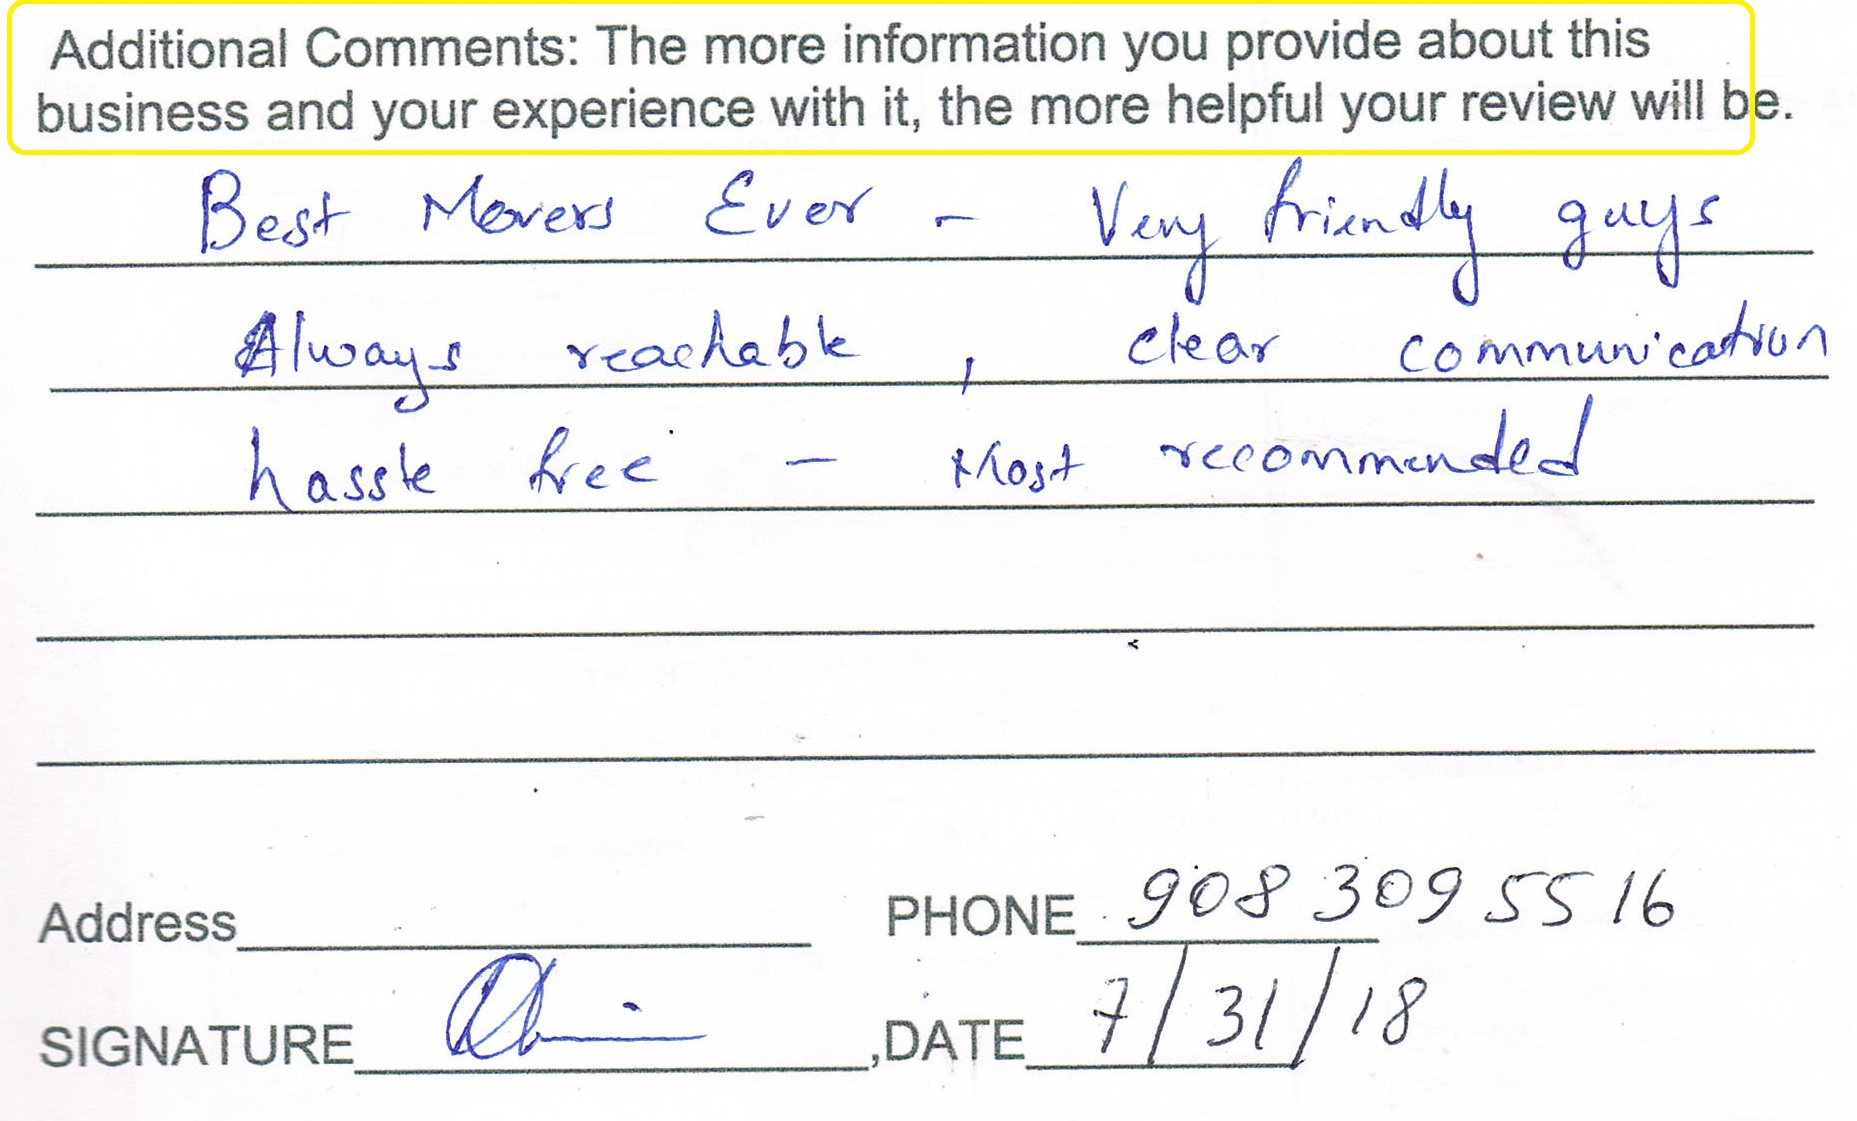 Additional Comments: The more information you provide about this
business and your experience with it, the more helpful your review will be.
Best Movers Ever - Very friendly guys
Always reachable , clear communication
hassle free - Most recommended
Address PHONE 908 309 5516
SIGNATURE ,DATE 7/31/18